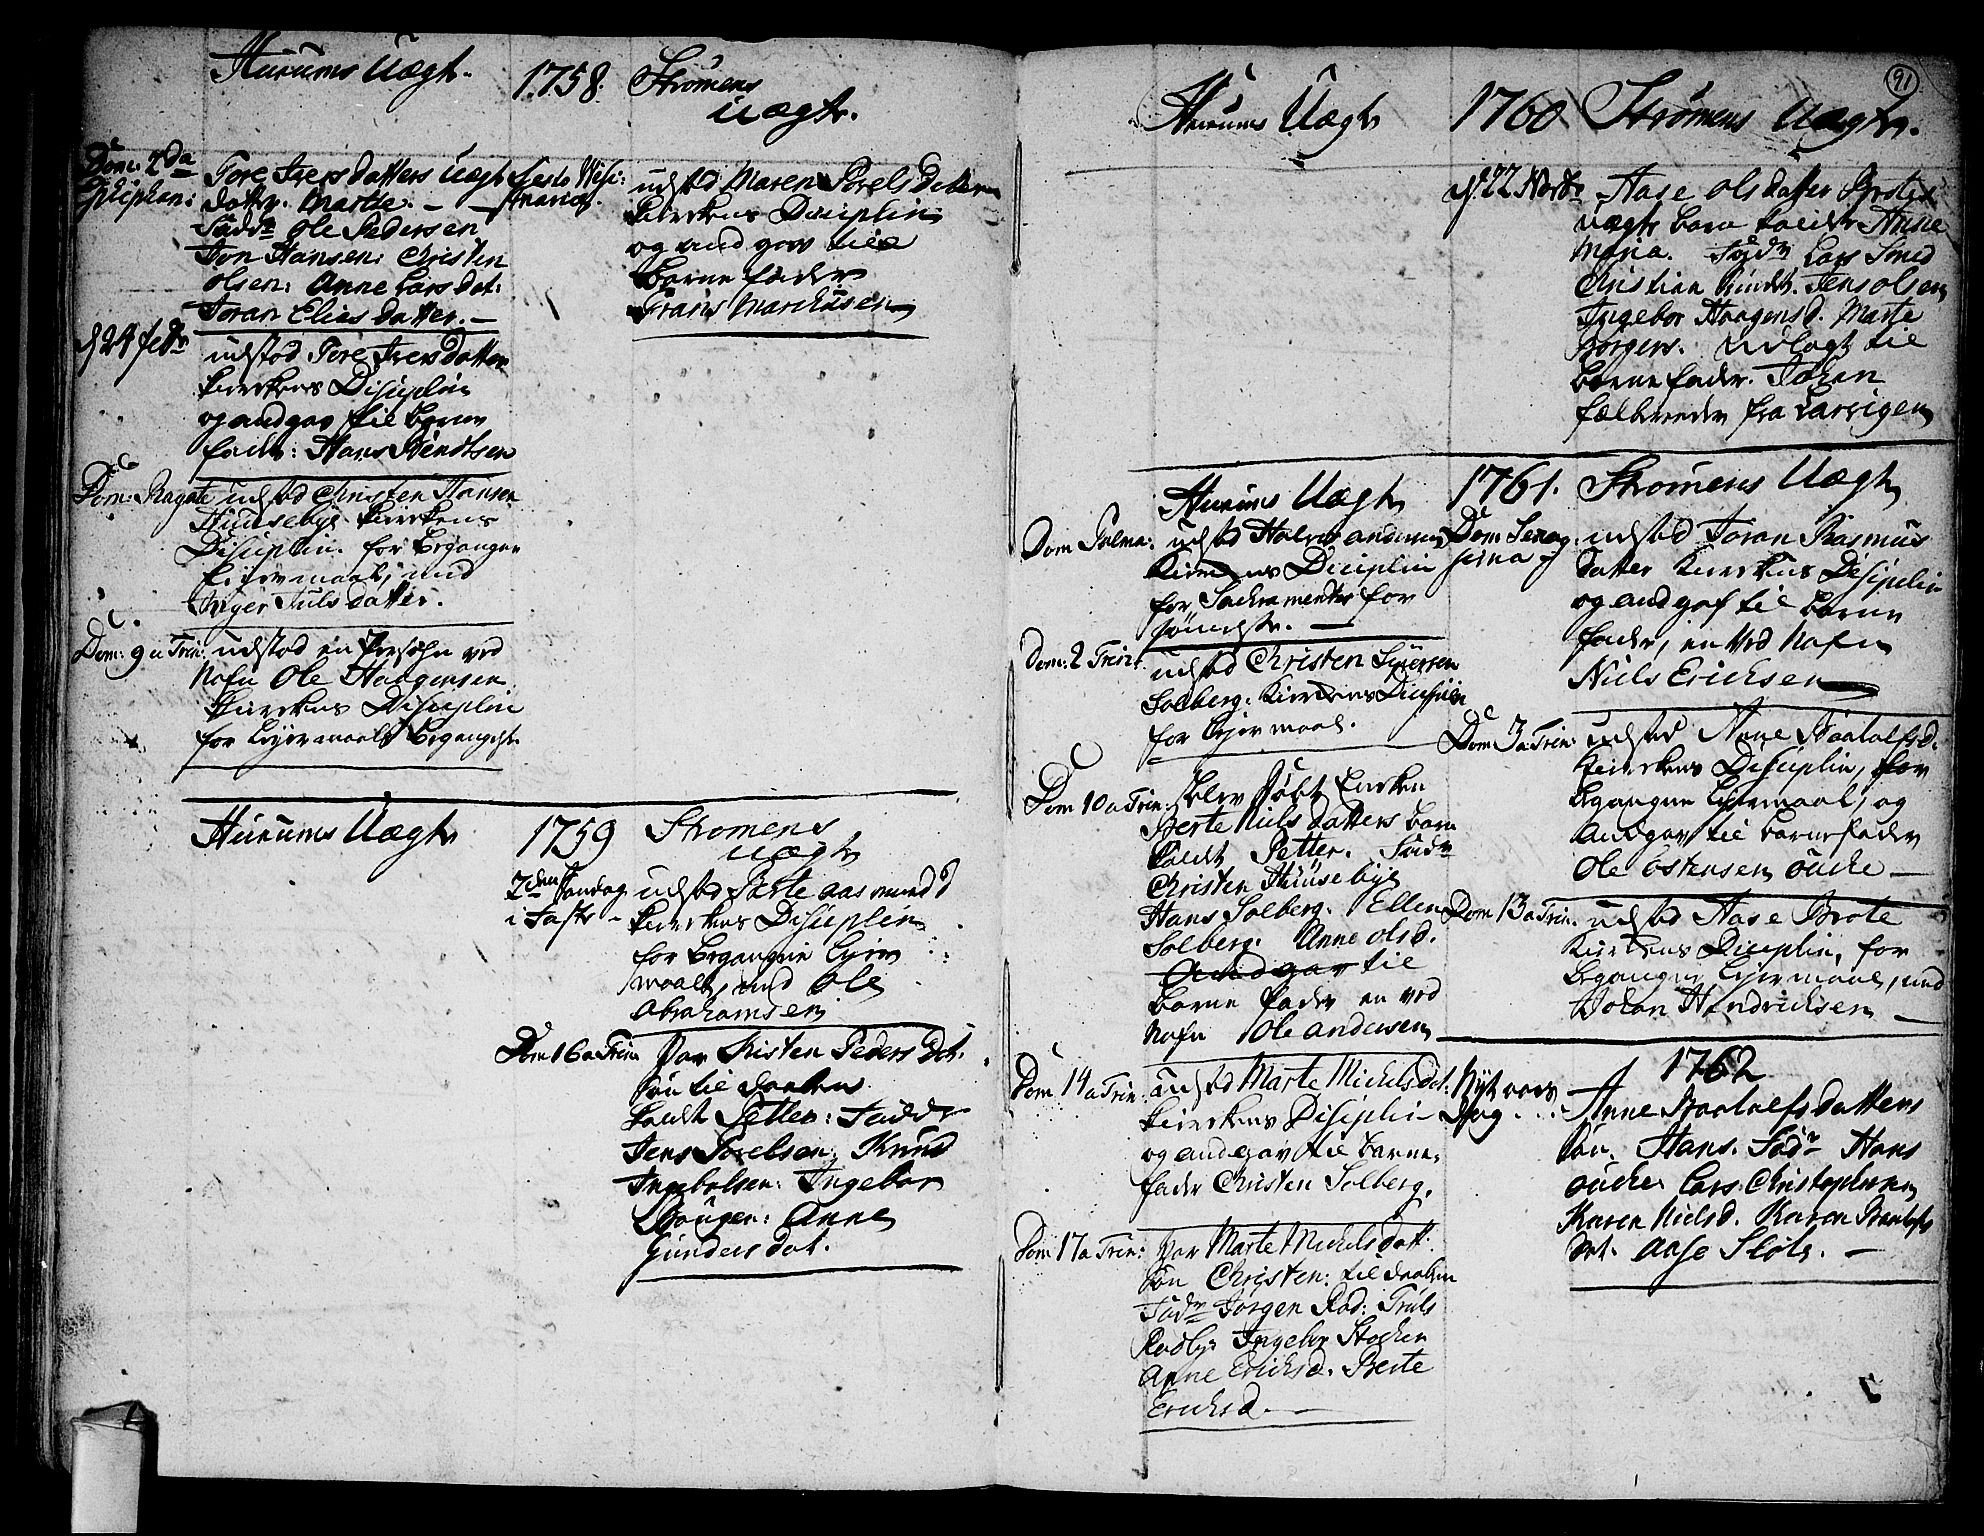 Hurums Uægt.
1758.
Strømens
Uægt.
Dom: 2da
Epiphan:
Tore Iversdatters Uægt
datter. Marthe. —
Fadd: Ole Pedersen
Jon Hansen: Christen
Olsen: Anne Larsdat:
Joran Eliasdatter. —
d 24 febr
udstod Tore Iversdatter
kierckens Disciplin
og andgav til barne
fader: Hans
Dom: Rogate udstod Christen Hansen
Huusebye kierckens
Disciplin. for begangen
leiermaal, med
Inger Juls datter.
Dom: 9 a Trin: udstod en
Nafn Ole Haagensen
kierckens Disciplin
for Leyermaals begangelse
Festo Visi:
Mariæ.
udstod Maren Povelsdatter
kierckens Disciplin
og andgav til
barne fader
Frans Marchusen
Hurums Uægt
1759
Strømens
Uægt
2den Søndag
i Faste -
udstod Marte Aasmundsd
kierckens Disciplin
for begangen Leyer
maal, med Ole
Abrahamsen
Dom 16 a Trin
var Kisten Peders Dat.
søn til daaben
kaldt Petter: Fadder
Jens Povelsen: Knud
Ingebretsen: Ingebor
Haugen: Anne
Gunders dat.
91
Hurums Uægt
1760
Strømens Uægt.
d 22 Novbr
Aase Olsdatter Brotes
uægte barn kaldet Anne
Maria. Fadr Lars Smed
Christian Jens Olsen
Ingebor Haagensd. Marte
Borgers. udlagt til
barne fader. Johan
fra Larvigen
Hurums Uægt
1761.
Strømens Uægt
Dom Palma: udstod Halvor Andersen
kierckens Disciplin
for Sacramentes for
sømmelse. —
Dom: 2 Trinit.
udstod Christen Syversen
Solberg. Kierckens Disciplin
for Leyermaal.
Dom 10 a Trin:
blev døbt i kircken
Berte Niels datters barn
kaldt Petter. Fadr
Christen Huusebye
Hans Solberg. Ellen
Solberg. Anne Olsd.
Andgav til
barne fader en ved
Nafn Ole Andersen
Dom 14 a Trin:
udstod Marte Michelsdat.
kierckens Disciplin
og andgav til barne
fader Christen Solberg.
Dom 17 a Trin:
var Marte Michelsdatt.
søn Christen: til daaben
Fadr Jorgen Rød: Truls
Rødby: Ingebor Stocker
Anne Ericksd. Berte
Ericksd. —
Dom Sexag
esima
udstod Joran Rasmus
datter kierckens Disciplin
og andgaf til barne
fader, en ved Nafn
Niels Ericksen
Dom 3 a Trin:
udstod Anne Raalefsd.
kierckens Disciplin, for
begangne Leyermaal, og
andgav til barnefader
Ole Ostensen oucke —
Dom 13 a Trin.
udstod Aase Brote
Kierckens Disciplin, for
begangen Leyermaal, med
Johan Hendricksen —
1762
Nyt aars
Dag.
Anne Raalefsdatters
søn. Hans. Fadr Hans
oucke. Lars Christophersen
Karen Nielsd. Karen Raalefs
dat. Aase Sløts. —